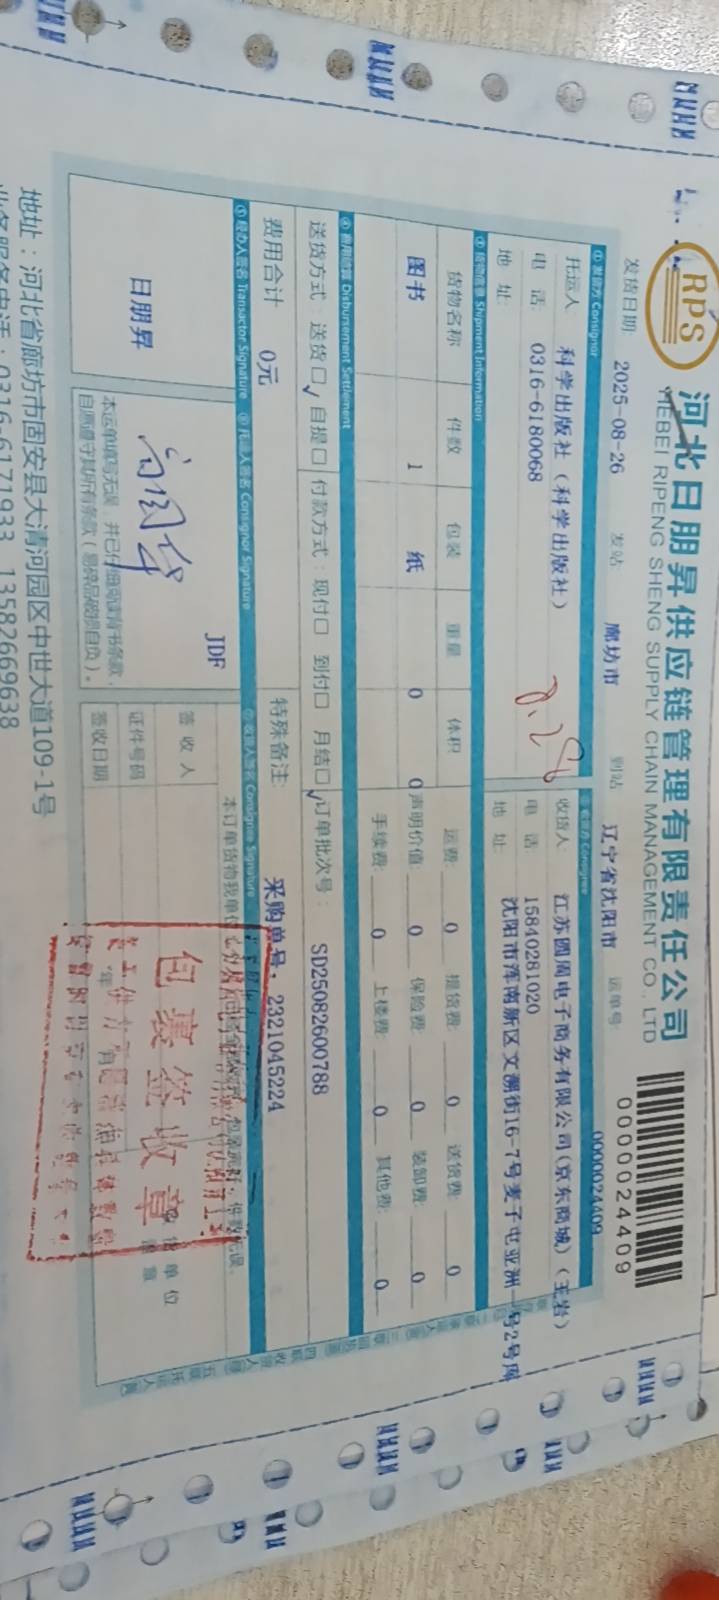 RPS
河北日朋昇供应链管理有限责任公司
HEBEI RIPENG SHENG SUPPLY CHAIN MANAGEMENT CO., LTD
0000024409
发货日期: 2025-08-26 发站 廊坊市 到站 辽宁省沈阳市 运单号: 0000024409
① 发货方 Consignor
② 收货方 Consignee
托运人 科学出版社（科学出版社）
收货人: 江苏圆周电子商务有限公司(京东商城)（王岩）
电 话: 0316-6180068
8.28
电 话: 15840281020
地 址:
地 址: 沈阳市浑南新区文溯街16-7号麦子屯亚洲一号2号库
③ 货物信息 Shipment Information
货物名称 件数 包装 重量 体积
运费: 0 提货费: 0 送货费: 0
图书 1 纸 0 0
声明价值: 0 保险费: 0 装卸费: 0
手续费: 0 上楼费: 0 其他费: 0
④ 费用结算 Disbursement Settlement
送货方式: 送货□✓ 自提□ 付款方式: 现付□ 到付□ 月结□✓ 订单批次号: SD25082600788
费用合计 0元 特殊备注: 采购单号: 2321045224
⑤ 经办人签名 Transactor Signature ⑥ 托运人签名 Consignor Signature ⑦ 收货人签名 Consignee Signature
本订单货物我单位
包装完好，件数无误
JDF
日朋昇
签收人
证件号码
签收日期
年
收货单位
盖章
包裹签收章
本运单填写无误，并已仔细阅读背书条款，
自愿遵守其所有条款（易碎品破损自负）。
地址：河北省廊坊市固安县大清河园区中世大道109-1号
业务服务电话：0316-6171933 13582669638